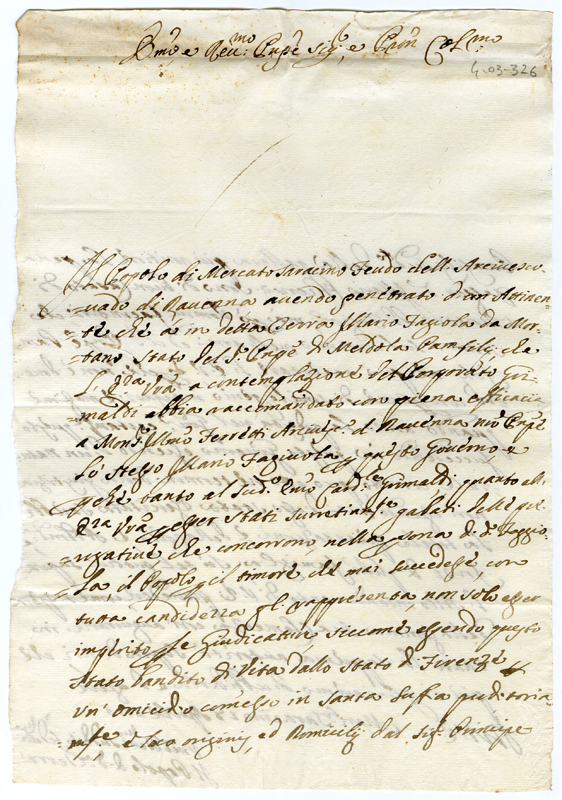 Emo, e Revmo: Prnpe Sigre, e Pron Colmo
4.03-326
Il Popolo di Mercato Saracino Feudo dell'Arcivesco-
=vado di Ravenna avendo penetrato d'un Attinen-
=te che à in detta Terra Mario Fagiola da Mor-
=tano Stato del Sr. Prnpe di Meldola Pamfilj, che
l' Vra a contemplazione del Porporato Gri-
=maldi abbia raccomandato con piena efficacia
a Monsr. Illmo Ferretti Arciv. di Ravenna nro Prnpe
lo stesso Mario Fagiuola questo Governo, e
che tanto al sudo. Emo Cardle Grimaldi, quanto all'
Vra esser stati gabbati delle
che concorrono nella sona di do. Faggio-
la, il Popolo il timore che mai succedesse, con
tutta candidezza gl. rappresenta, non solo esser
imperito Giudicatur, siccome essendo questo
stato bandito di Vita dallo Stato di Firenze
un' omicidio comesso in Santa Sofia
e loro origini, ed Domicilj dal Sigr. Principe